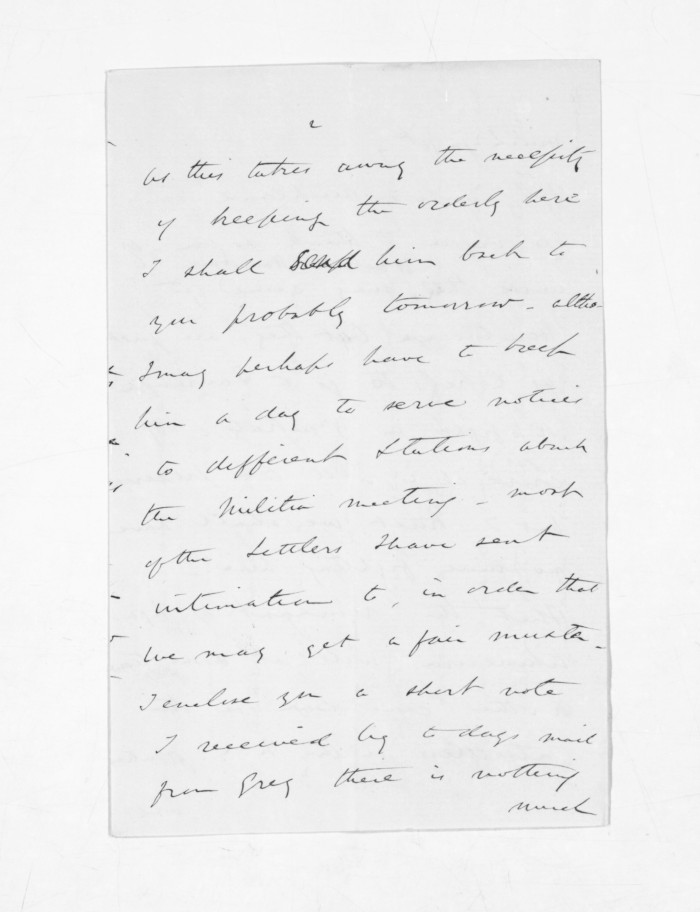 2
As this takes away the necessity
of keeping the orderly here
I shall send him back to
you probably tomorrow - altho
I may perhaps have to keep
him a day to serve notices
to different Stations about
the Militia meeting - most
of the Settlers I have sent
intimation to, in order that
we may get a fair muster.
I enclose you a short note
I received by to days mail
from Grey there is nothing
much